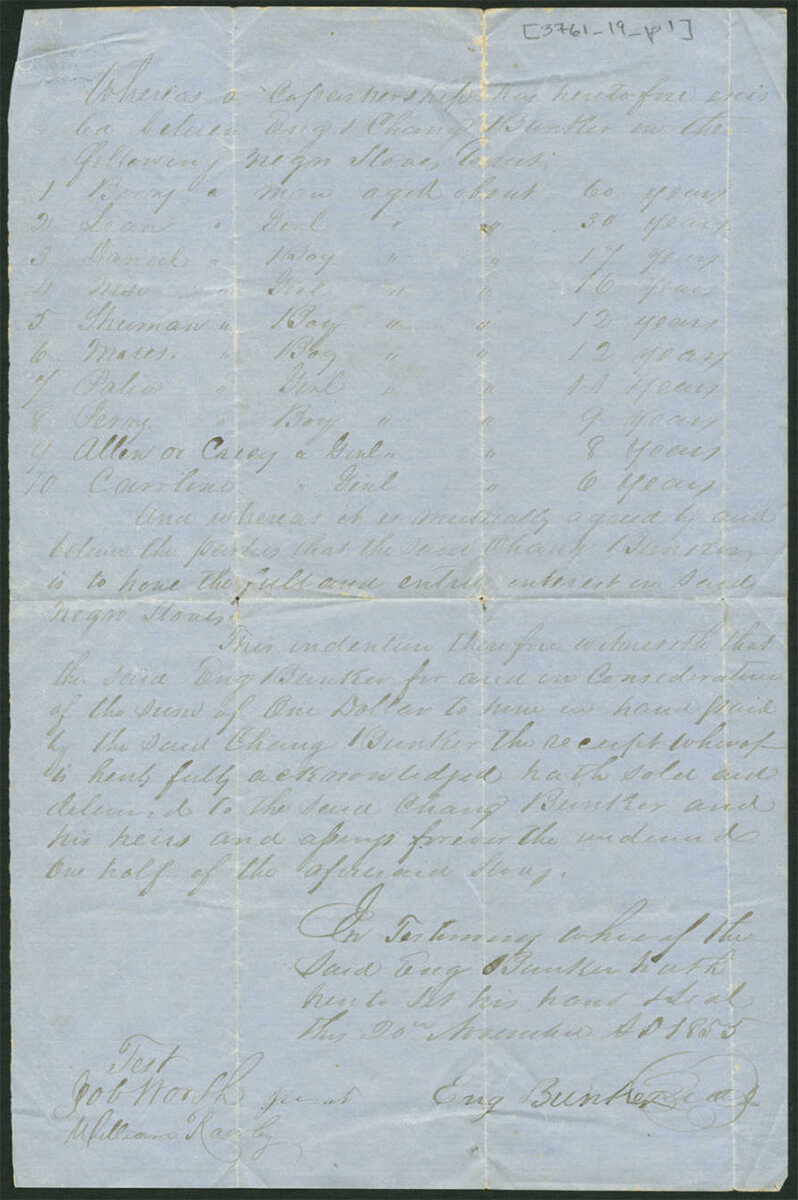 [3761-19-p1]
Whereas a Copartnership has heretofore exis
ted between Eng & Chang Bunker in the
following negro Slaves towit
1 Berry a man aged about 60 years
2 Lean " Girl " " 30 years
3 " Boy " " 17 years
4 " Girl " " 16 years
5 Thurman " Boy " " 12 years
6 Moses " Boy " " 12 years
7 " Girl " " 11 years
8 " Boy " 9 years
9 Allen or Casey a Girl " " 8 years
10 Caroline " Girl " 6 years
And whereas it is mutually agreed by and
between the parties that the said Chang Bunker
is to have the full and entire interest in said
negro Slaves
This indenture therefore witnesseth that
the said Eng Bunker for and in Consideration
of the sum of One Dollar to him in hand paid
by the said Chang Bunker the receipt whereof
is hereby fully acknowledged hath sold and
delivered to the said Chang Bunker and
his heirs and assigns forever the undivided
One half of the aforesaid Slaves.
In Testimony whereof the
said Eng Bunker hath
hereto set his hand & Seal
this 20th November AD 1855
Test
Job Worth
Eng Bunker Seal
William